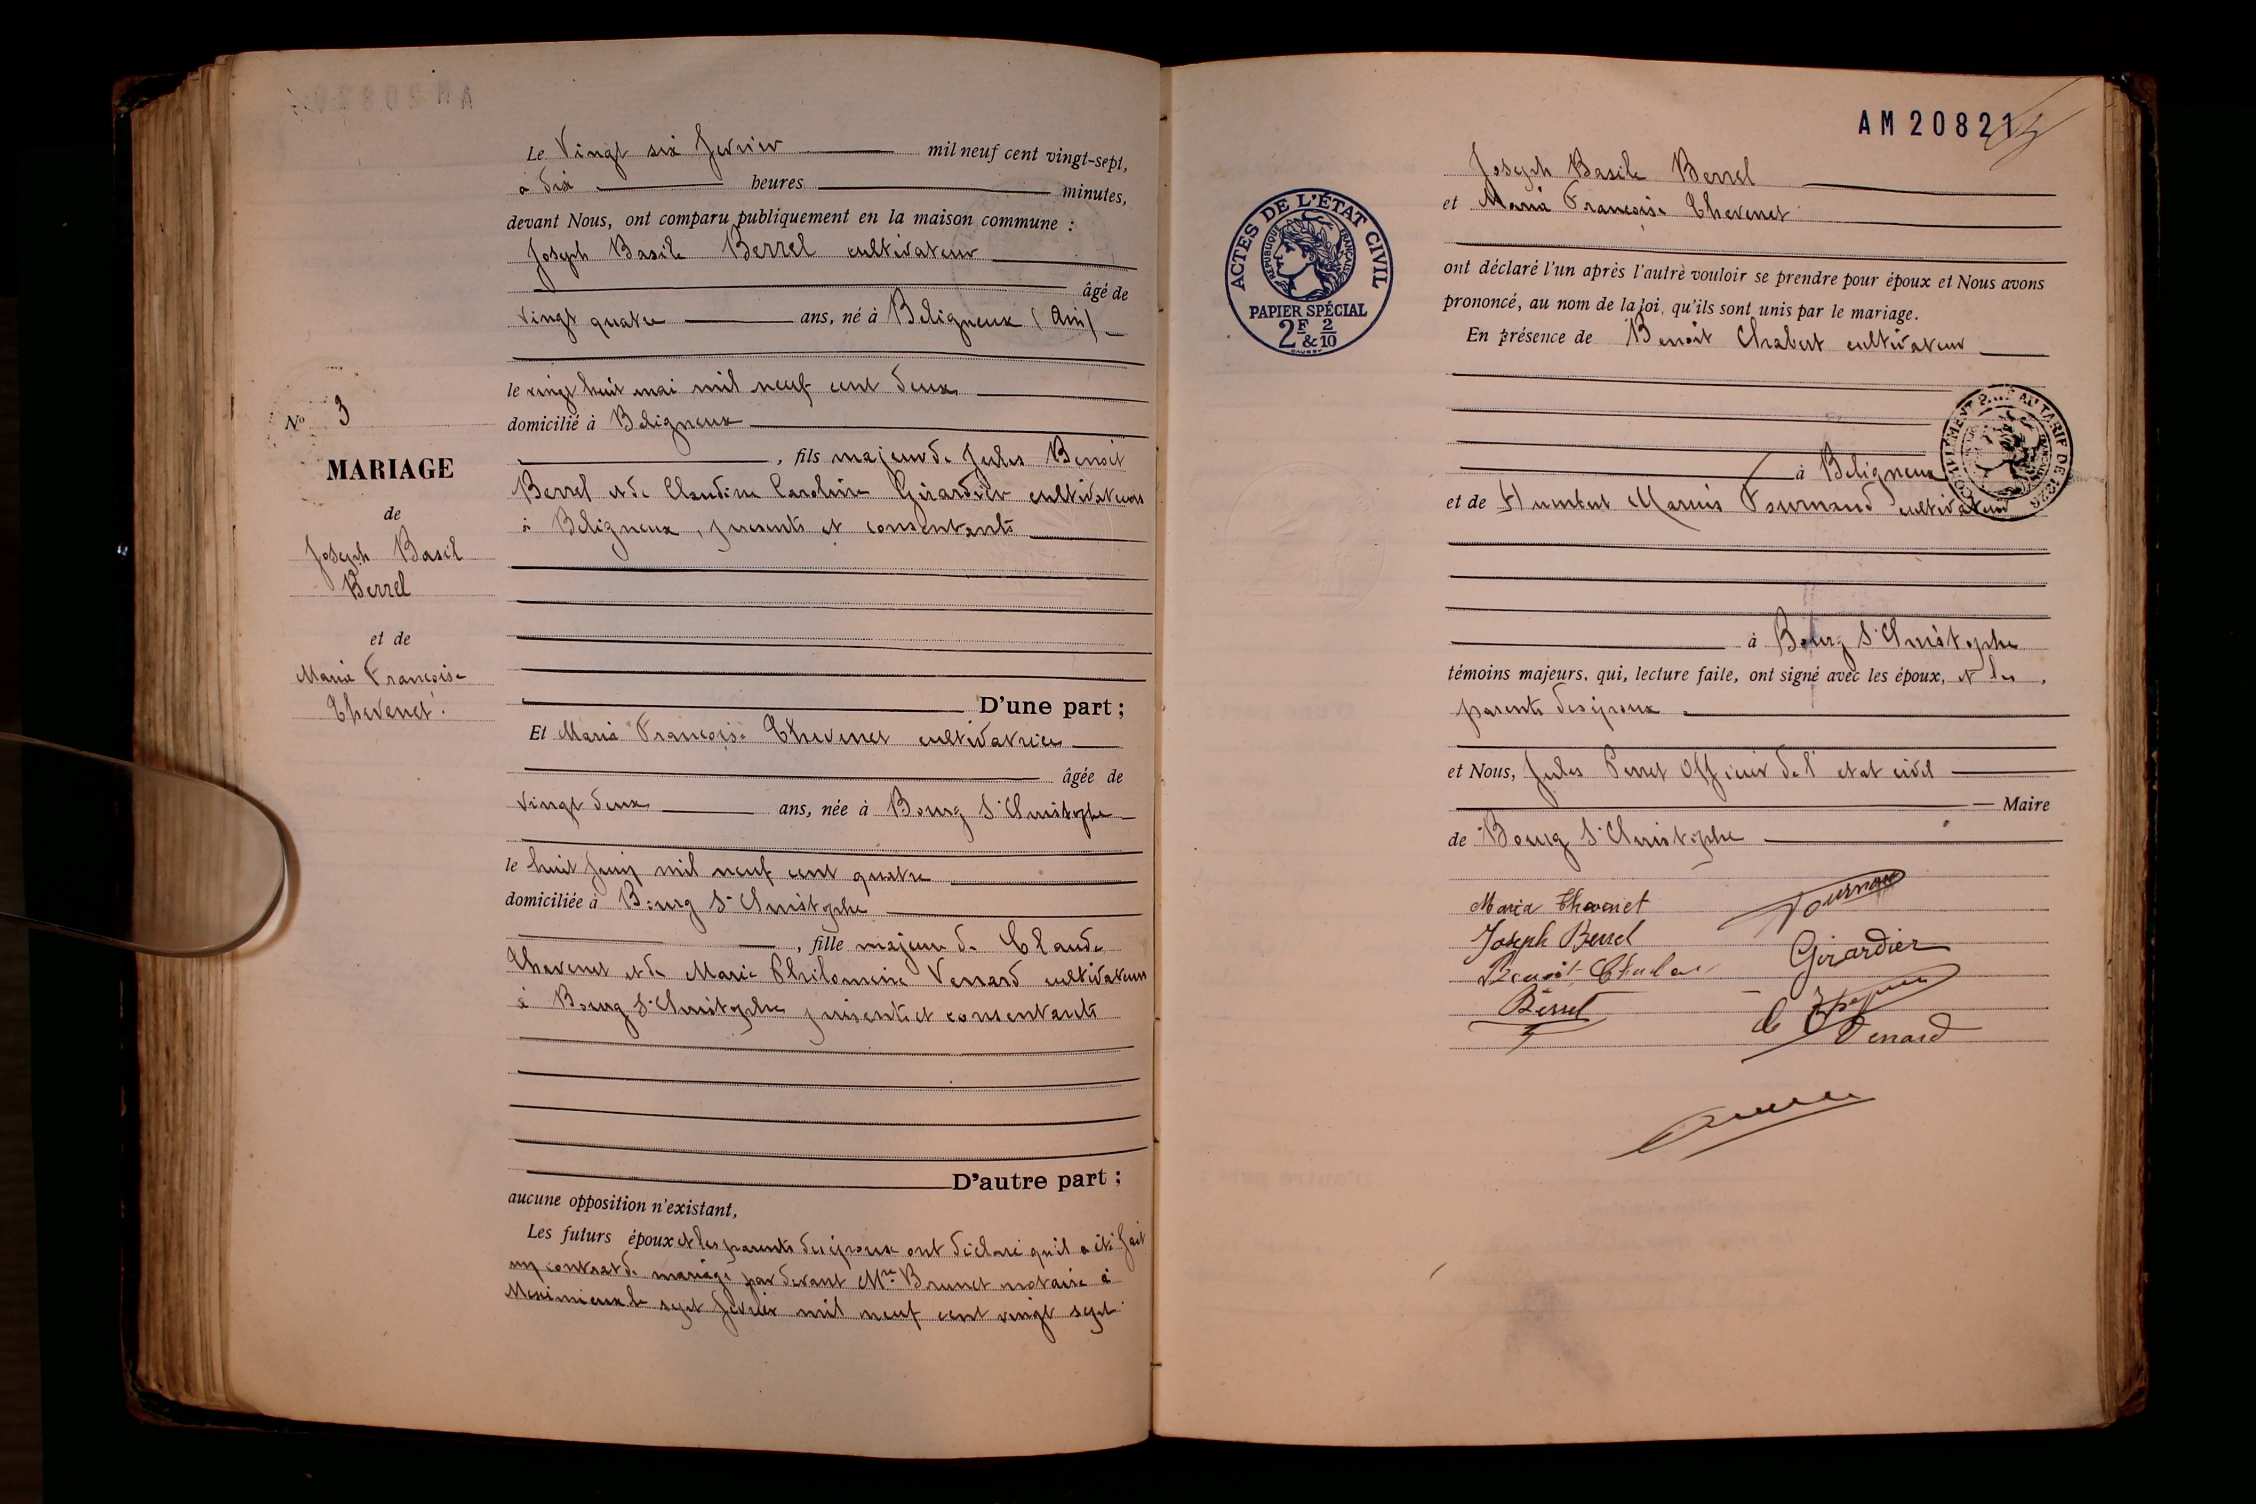 Le Vingt six février mil neuf cent vingt-sept,
à dix heures minutes,
devant Nous, ont comparu publiquement en la maison commune :
Joseph Basile Berrel cultivateur
âgé de
vingt quatre ans, né à Béligneux (Ain)
le vingt huit mai mil neuf cent deux
domicilié à Béligneux
, fils majeur de Jules Benoit
Berrel et de Claudine Caroline Girardier cultivateurs
à Béligneux, présents et consentants
D'une part ;
Nº 3
MARIAGE
de
Joseph Basil
Berrel
et de
Maria Françoise
Thevenet.
Et Maria Françoise Thevenet cultivatrice
âgée de
vingt deux ans, née à Bourg St Christophe
le huit juin mil neuf cent quatre
domiciliée à Bourg St Christophe
, fille majeure de Claude
Thevenet et de Marie Philomène Venard cultivateurs
à Bourg St Christophe présents et consentants
D'autre part ;
aucune opposition n'existant,
Les futurs époux et les parents des époux ont déclaré qu'il a été fait
un contrat de mariage par devant Me Brunet notaire à
Meximieux le sept février mil neuf cent vingt sept.
AM 20821
Joseph Basile Berrel
et Maria Françoise Thevenet
ont déclaré l'un après l'autre vouloir se prendre pour époux et Nous avons
prononcé, au nom de la loi, qu'ils sont unis par le mariage.
En présence de Benoit Chabert cultivateur
à Béligneux
et de Humbert Marius Fournand cultivateur
à Bourg St Christophe
témoins majeurs. qui, lecture faite, ont signé avec les époux, et les
parents des époux
et Nous, Jules Perret Officier de l'état civil
Maire
de Bourg St Christophe
ACTES DE L'ÉTAT CIVIL
RÉPUBLIQUE FRANÇAISE
PAPIER SPÉCIAL
2F & 2/10
Maria Thevenet
Joseph Berrel
Girardier
Berrel
Venard